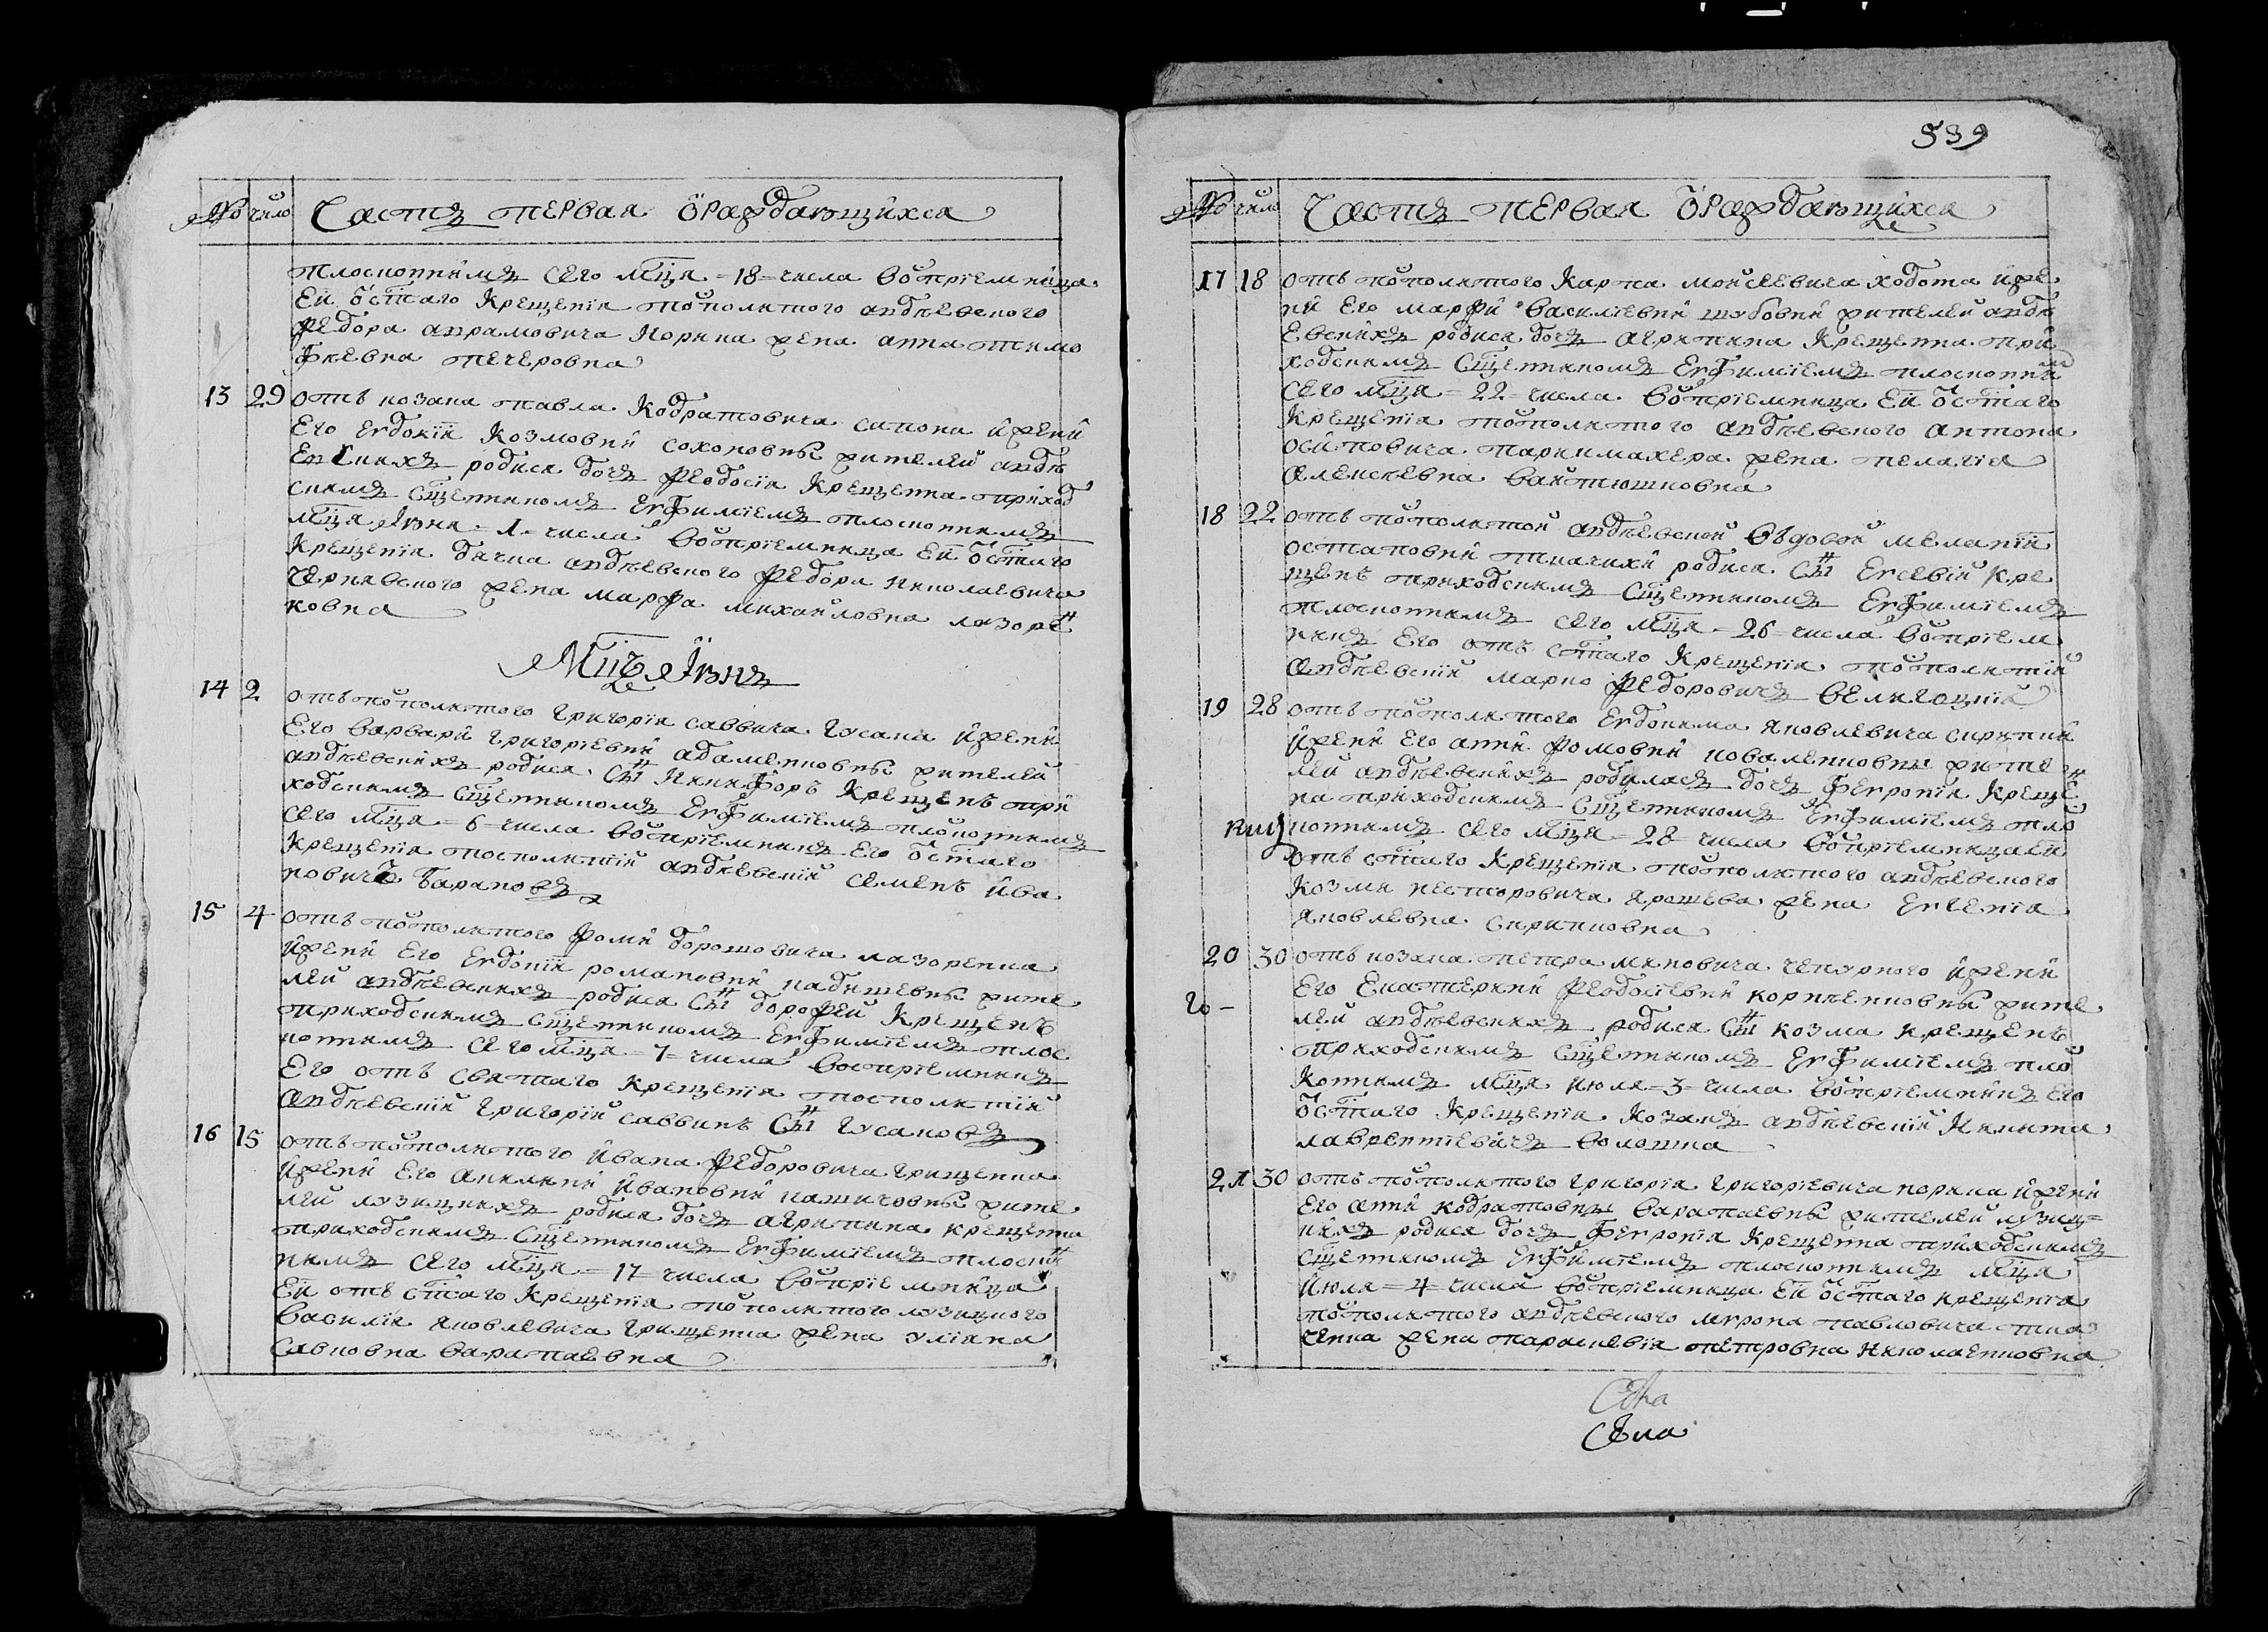 № число Часть первая о раждающихся
плоскопнимъ сего мца = 18 = числа воприемница
ей ѿ стаго крещения посполитого андреевского
Федора аврамовича норкна жена анна тимо
феевна печеровна
13 29 отъ козака павла Кодратовича сипона и жени
Его Евдокіи Козмовни сохоновны жителей андре
евскихъ родися дочъ Феодосия крещенна приход
скимъ Сщенникомъ Евфимиемъ плоскопнимъ
мца Июня 1 = числа воприемница ей ѿ стаго
крещения дячка андреевского Федора николаевича
чернявского жена марфа михайловна лазорен
ковна
Мцъ Июнь
14 2 отъ посполитого григория саввича гусака и жени
Его варвари григориевни адаменновны жителей
андреевскихъ родися сын Никифоръ Крещенъ при
ходскимъ Сщенникомъ Евфимиемъ плоскопнимъ
сего мца = 6 = числа воприемникъ Его ѿ стаго
крещения посполитий андреевский семенъ ива
новичъ барановъ
15 4 отъ посполитого Фоми дорошовича лазоренка
и жени Его Евдокии романовни кадишевны жите
лей андреевскихъ родися сын дорофей Крещенъ
приходскимъ Сщенникомъ Евфимиемъ плос
копнимъ сего мца = 7 = числа восприемникъ
Его отъ святаго крещения посполитий
андреевский григорий саввинъ сын гусаковъ
16 15 отъ посполитого ивана Федоровича грищенка
и жени Его акилини ивановни кашичовны жите
лей лузицкихъ родися дочъ агрипина крещенна
приходскимъ Сщенникомъ Евфимиемъ плоскоп
нимъ сего мца = 17 = числа воприемница
Ей отъ стаго крещения посполитого лузицкого
василия яковлевича грищенка жена улияна
савковна варапаевна
539
№ число Часть первая о раждающихся
17 18 отъ посполитого Карпа моисеевича ходота и же
ни Его марфи василиевни шубовни жителей андре
евскихъ родися дочъ агрипина крещенна при
ходскимъ Сщенникомъ Евфимиемъ плоскопнимъ
сего мца = 22 = числа воприемница ей ѿ стаго
крещения посполитого андреевского антона
осиповича паркимахера жена пелагия
алексеевна вактюшковна
18 22 отъ посполитой андреевской въдовой меланіи
остаповни ткачихи родися сын Евсевий кре
щенъ приходскимъ Сщенникомъ Евфимиемъ
плоскопнимъ сего мца = 26 = числа воприем
никъ Его отъ стаго крещения посполитий
андреевский марко Федоровичъ великоцкий
19 28 отъ посполитого Евдокима яковлевича скрипки
и жени Его анни Фомовни коваленковны жите
лей андреевскихъ родилась дочъ Феврония креще
на приходскимъ Сщенникомъ Евфимиемъ плос
копнимъ сего мца = 28 числа воприемница ей
отъ стаго крещения посполитого андреевского
козми несторовича ярошева жена Евгения
яковлевна скрипковна
20 30 отъ козака петра миновича чепурного и жени
Его Екатерини Феодосиевни корниенковны жите
го -
лей андреевскихъ родися сын козма крещенъ
приходскимъ Сщенникомъ Евфимиемъ плос
копнимъ мца июля = 3 = числа воприемникъ его
ѿ стаго крещения козакъ андреевский Никита
лаврентиевичъ волошка
21 30 отъ посполитого григория григориевича норкна и жени
Его анни кодратовны варапаевны жителей лузиц=
кихъ родися дочъ Феврония крещенна приходскимъ
Сщенникомъ Евфимиемъ плоскопнимъ мца
июля = 4 = числа воприемница ей ѿ стаго крещения
посполитого андреевского мирона павловича тка
ченка жена параскевия петровна николаенковна